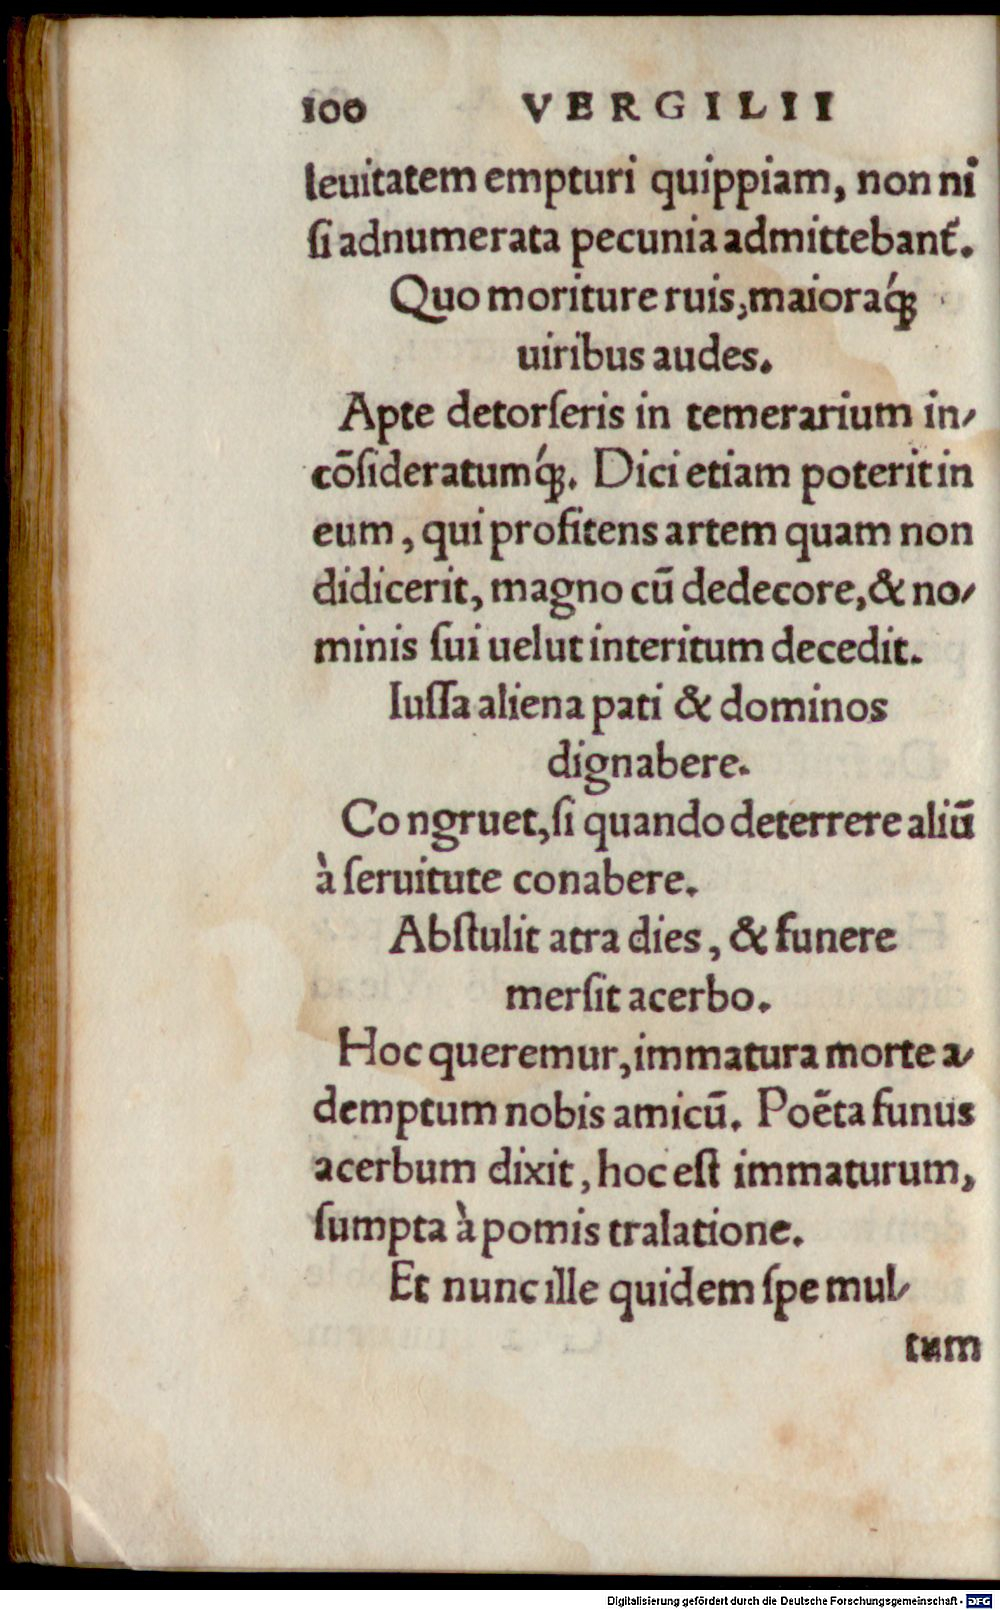 100 VERGILII
leuitatem empturi quippiam, non ni
ſi adnumerata pecunia admittebant᷑.
Quo moriture ruis, maioraq́;
uiribus audes.
Apte detorſeris in temerarium in⸗
cōſideratumq́;. Dici etiam poterit in
eum, qui profitens artem quam non
didicerit, magno cū dedecore, & no⸗
minis ſui uelut interitum decedit.
Iuſſa aliena pati & dominos
dignabere.
Congruet, ſi quando deterrere aliū
à ſeruitute conabere.
Abſtulit atra dies, & funere
merſit acerbo.
Hoc queremur, immatura morte a⸗
demptum nobis amicū. Poēta funus
acerbum dixit, hoc eſt immaturum,
ſumpta à pomis tralatione.
Et nunc ille quidem ſpe mul⸗
tum
Digitalisierung gefördert durch die Deutsche Forschungsgemeinschaft - DFG